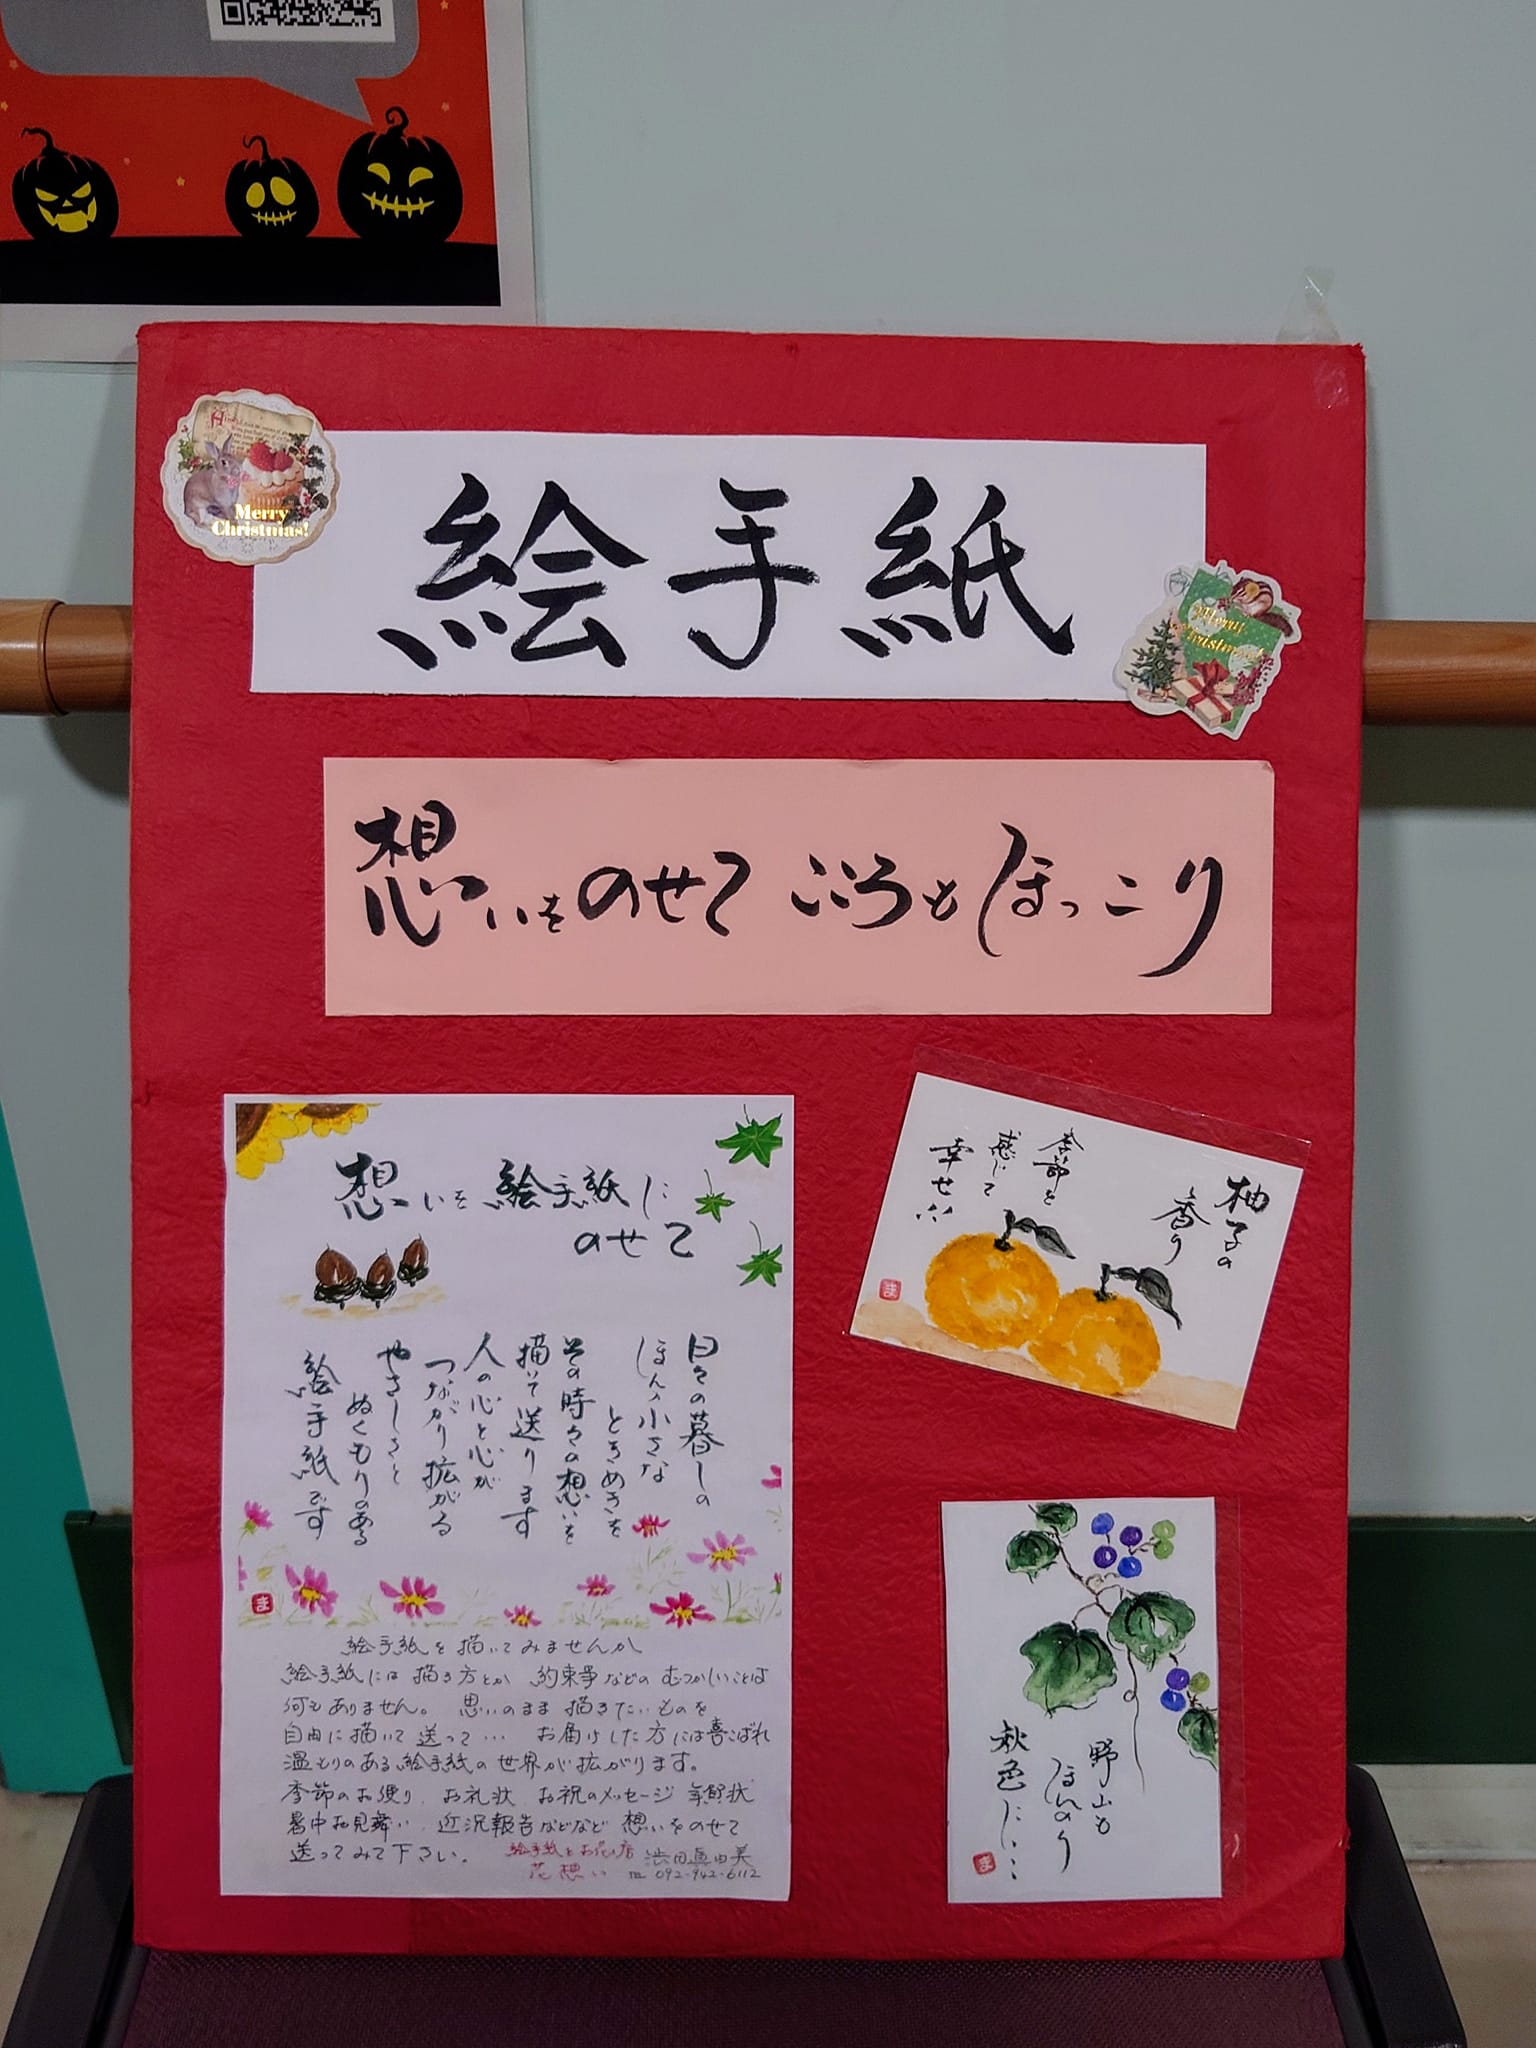 Merry
Christmas!
絵手紙
Merry
Christmas!
想いをのせて こころもほっこり
想いを絵手紙に
のせて
日々の暮しの
ほんの小さな
ときめきを
その時々の想いを
描いて送ります
人の心と心が
つながり拡がる
やさしさと
ぬくもりのある
絵手紙です
ま
絵手紙を描いてみませんか
絵手紙には描き方とか 約束事などの むつかしいことは
何もありません。 思いのまま 描きたいものを
自由に描いて送って… お届けした方には喜ばれ
温もりのある絵手紙の世界が拡がります。
季節のお便り、お礼状 お祝のメッセージ 年賀状
暑中お見舞い、近況報告などなど 想いをのせて
送ってみて下さい。
絵手紙とお花の店
花想い
渋田眞由美
TEL 092-942-6112
柚子の
香り
季節を
感じて
幸せ…
ま
野山も
ほんのり
秋色に…
ま